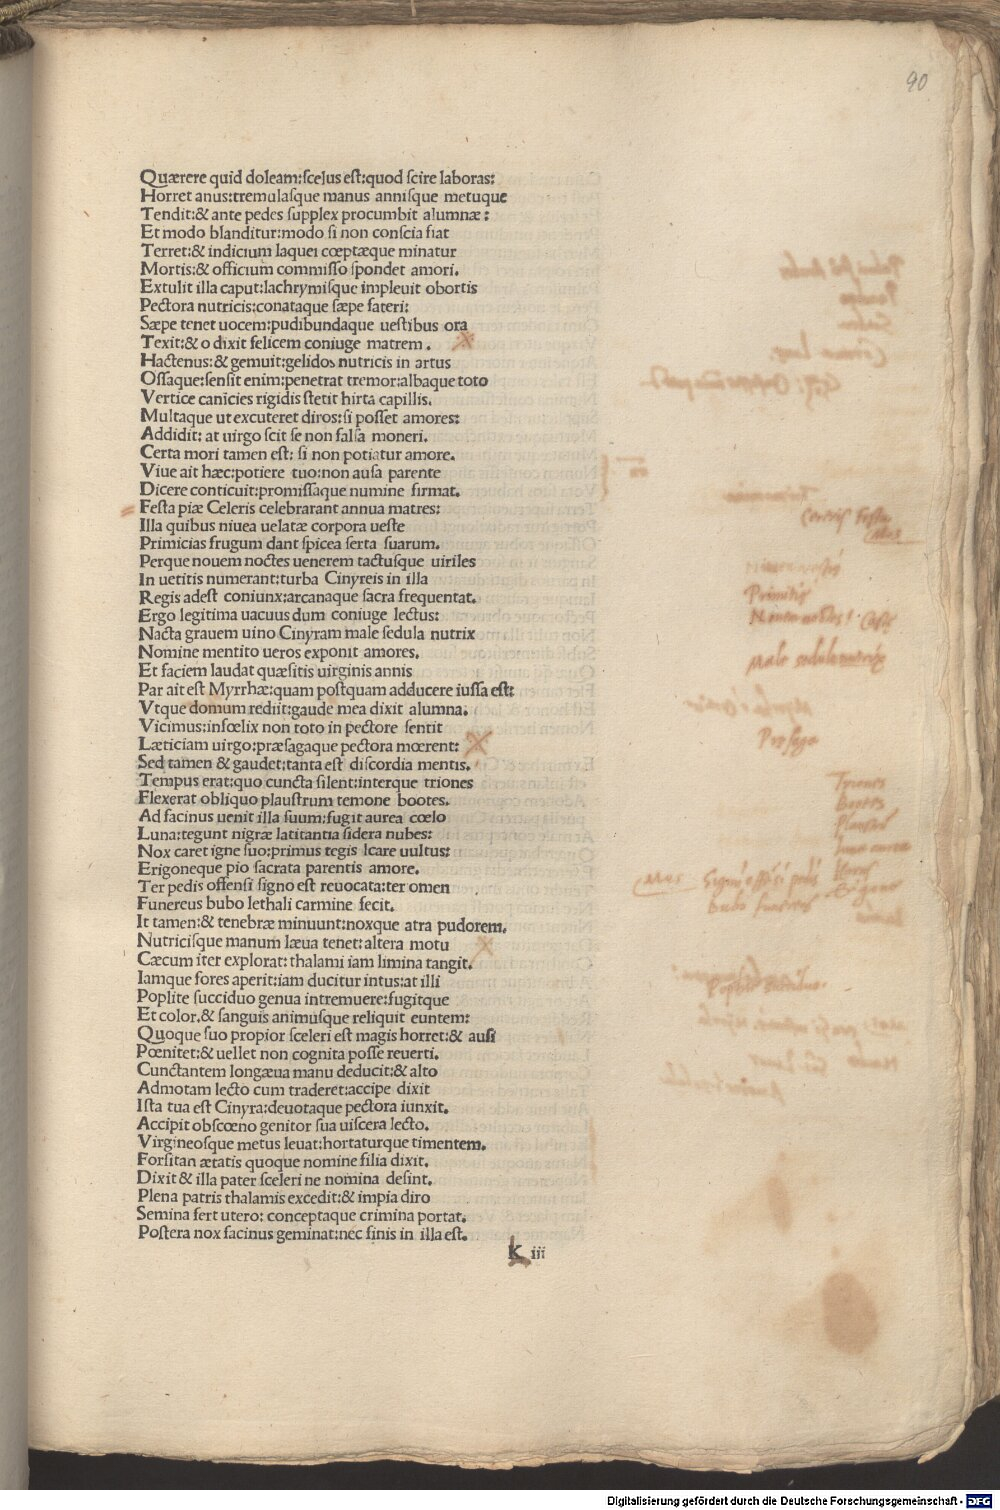 90
Quærere quid doleam:scelus est:quod scire laboras:
Horret anus:tremulasque manus annisque metuque
Tendit:& ante pedes supplex procumbit alumnæ:
Et modo blanditur:modo si non conscia fiat
Terret:& indicium laquei cœptæque minatur
Mortis:& officium commisso spondet amori.
Extulit illa caput:lachrymisque impleuit obortis
Pectora nutricis:conataque sæpe fateri:
Sæpe tenet uocem:pudibundaque uestibus ora
Texit:& o dixit felicem coniuge matrem.
Hactenus:& gemuit:gelidos nutricis in artus
Ossaque:sensit enim:penetrat tremor:albaque toto
Vertice canicies rigidis stetit hirta capillis.
Multaque ut excuteret diros:si posset amores:
Addidit: at uirgo scit se non falsa moneri.
Certa mori tamen est: si non potiatur amore.
Viue ait hæc:potiere tuo:non ausa parente
Dicere conticuit:promissaque numine firmat.
Festa piæ Celeris celebrarant annua matres:
Illa quibus niuea uelatæ corpora ueste
Primicias frugum dant spicea serta suarum.
Perque nouem noctes uenerem tactusque uiriles
In uetitis numerant:turba Cinyreis in illa
Regis adest coniunx:arcanaque sacra frequentat.
Ergo legitima uacuus dum coniuge lectus:
Nacta grauem uino Cinyram male sedula nutrix
Nomine mentito ueros exponit amores.
Et faciem laudat quæsitis uirginis annis
Par ait est Myrrhæ:quam postquam adducere iussa est:
Vtque domum rediit:gaude mea dixit alumna.
Vicimus:infœlix non toto in pectore sentit
Læticiam uirgo:præsagaque pectora mœrent:
Sed tamen & gaudet:tanta est discordia mentis.
Tempus erat:quo cuncta silent:interque triones
Flexerat obliquo plaustrum temone bootes.
Ad facinus uenit illa suum:fugit aurea cœlo
Luna:tegunt nigræ latitantia sidera nubes:
Nox caret igne suo:primus tegis Icare uultus:
Erigoneque pio sacrata parentis amore.
Ter pedis offensi signo est reuocata:ter omen
Funereus bubo lethali carmine fecit.
It tamen:& tenebræ minuunt:noxque atra pudorem.
Nutricisque manum læua tenet:altera motu
Cæcum iter explorat:thalami iam limina tangit.
Iamque fores aperit:iam ducitur intus:at illi
Poplite succiduo genua intremuere:fugitque
Et color.& sanguis animusque reliquit euntem:
Quoque suo propior sceleri est magis horret:& ausi
Pœnitet:& uellet non cognita posse reuerti.
Cunctantem longæua manu deducit:& alto
Admotam lecto cum traderet:accipe dixit
Ista tua est Cinyra:deuotaque pectora iunxit.
Accipit obscœno genitor sua uiscera lecto.
Virgineosque metus leuat:hortaturque timentem.
Forsitan ætatis quoque nomine filia dixit.
Dixit & illa pater sceleri ne nomina desint.
Plena patris thalamis excedit:& impia diro
Semina fert utero: conceptaque crimina portat.
Postera nox facinus geminat:nec finis in illa est.
K iii
Cereris Festa
Primitie
male sedula nutrix
Presaga
Triones
Bootes
Digitalisierung gefördert durch die Deutsche Forschungsgemeinschaft - DFG